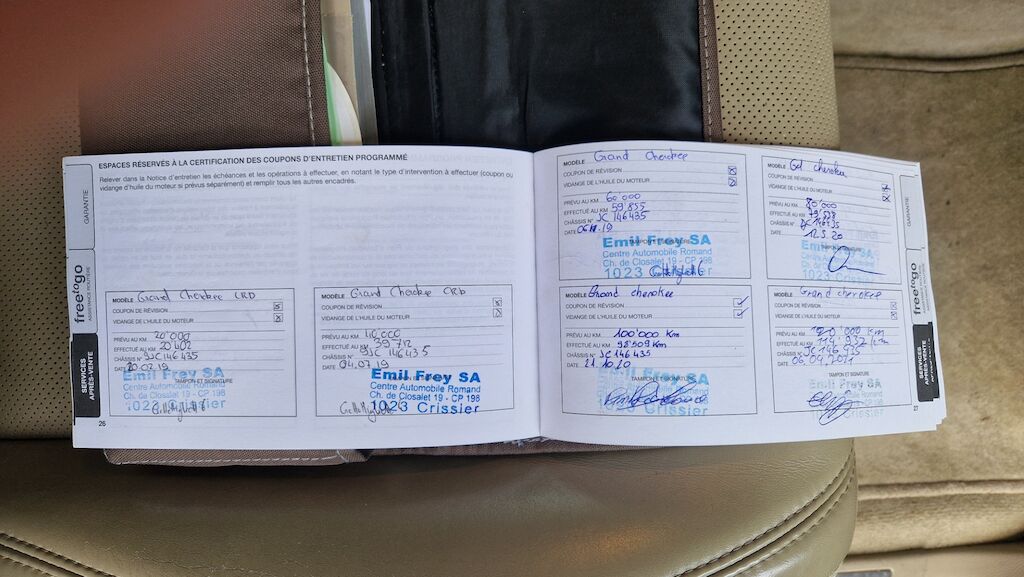 ESPACES RÉSERVÉS À LA CERTIFICATION DES COUPONS D'ENTRETIEN PROGRAMMÉ
Relever dans la Notice d'entretien les échéances et les opérations à effectuer, en notant le type d'intervention à effectuer (coupon ou
vidange d'huile du moteur si prévus séparément) et remplir tous les autres encadrés.
GARANTIE
freetogo
ASSISTANCE ROUTIÈRE
SERVICES
APRÈS-VENTE
MODÈLE Grand Cherokee CRD
COUPON DE RÉVISION
VIDANGE DE L'HUILE DU MOTEUR
PRÉVU AU KM 20'000
EFFECTUÉ AU KM 20 402
CHÂSSIS N° 9JC 146 435
DATE 20.02.19
Emil Frey SA
TAMPON ET SIGNATURE
Centre Automobile Romand
Ch. de Closalet 19 - CP 198
1023 Crissier
MODÈLE Grand Cherokee CRD
COUPON DE RÉVISION
VIDANGE DE L'HUILE DU MOTEUR
PRÉVU AU KM 40.000
EFFECTUÉ AU KM 39 712
CHÂSSIS N° 9JC 146435
DATE 04.07.19
Emil Frey SA
TAMPON ET SIGNATURE
Centre Automobile Romand
Ch. de Closalet 19 - CP 198
1023 Crissier
26
MODÈLE Grand Cherokee
COUPON DE RÉVISION
VIDANGE DE L'HUILE DU MOTEUR
PRÉVU AU KM 60'000
EFFECTUÉ AU KM 59'855
CHÂSSIS N° JC 146435
DATE
TAMPON ET SIGNATURE
Emil Frey SA
Centre Automobile Romand
Ch. de Closalet 19 - CP 198
1023 Crissier
MODÈLE Gd cherokee
COUPON DE RÉVISION
VIDANGE DE L'HUILE DU MOTEUR
PRÉVU AU KM 80'000
EFFECTUÉ AU KM 79'528
CHÂSSIS N° JC 146435
DATE 12.5.20
TAMPON ET SIGNATURE
Centre Automobile Romand
1023 Crissier
MODÈLE Grand cherokee
COUPON DE RÉVISION
VIDANGE DE L'HUILE DU MOTEUR
PRÉVU AU KM 100'000 Km
EFFECTUÉ AU KM 98'509 Km
CHÂSSIS N° JC 146435
DATE 21.10.20
TAMPON ET SIGNATURE
Emil Frey SA
MODÈLE Grand cherokee
COUPON DE RÉVISION
VIDANGE DE L'HUILE DU MOTEUR
PRÉVU AU KM 120'000 Km
EFFECTUÉ AU KM 114'932 Km
CHÂSSIS N° JC 146435
DATE
TAMPON ET SIGNATURE
GARANTIE
freetogo
SERVICES
APRÈS-VENTE
27